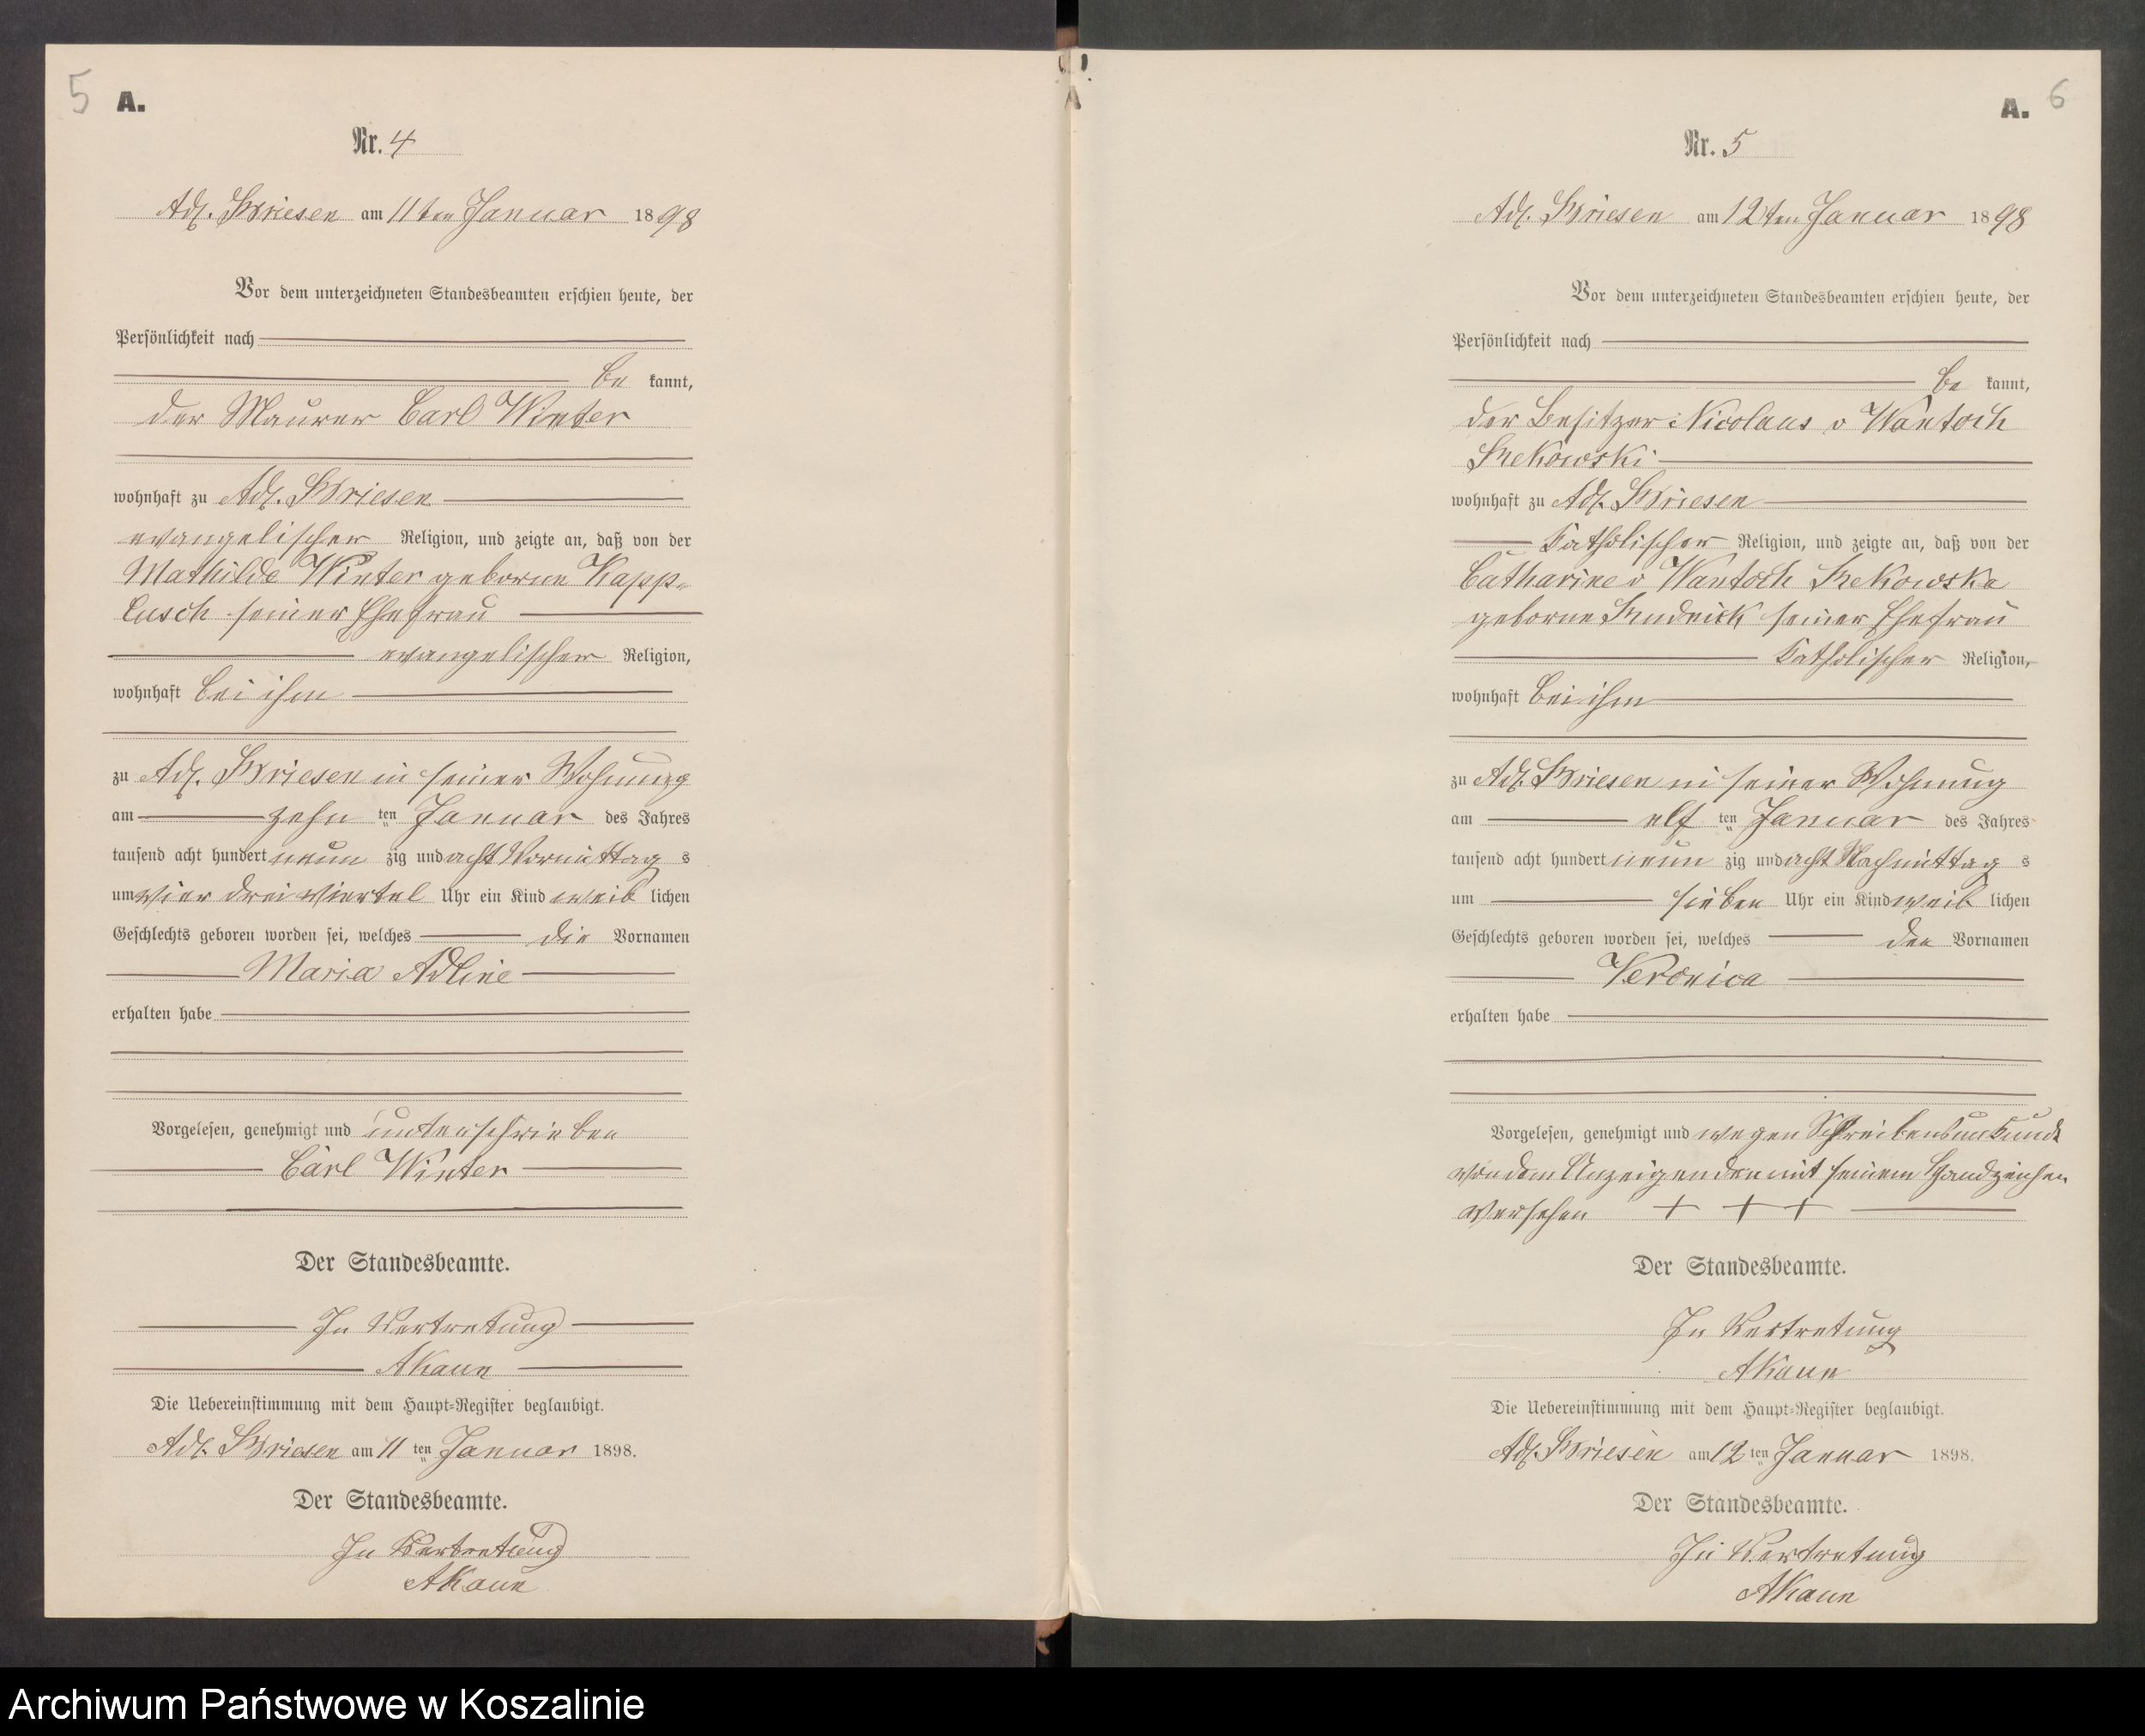 5 A.
Nr. 4
Adl. Briesen am 11ten Januar 1898
Vor dem unterzeichneten Standesbeamten erschien heute, der
Persönlichkeit nach
be kannt,
der Maurer Carl Winter
wohnhaft zu Adl. Briesen
evangelischer Religion, und zeigte an, daß von der
Mathilde Winter geborene Kapp-
lusch seiner Ehefrau
evangelischer Religion,
wohnhaft bei ihm
zu Adl. Briesen in seiner Wohnung
am zehn ten Januar des Jahres
tausend acht hundert neun zig und acht Vormittag s
um vier dreiviertel Uhr ein Kind weib lichen
Geschlechts geboren worden sei, welches die Vornamen
Maria Adline
erhalten habe
Vorgelesen, genehmigt und unterschrieben
Carl Winter
Der Standesbeamte.
In Vertretung
AKaun
Die Uebereinstimmung mit dem Haupt-Register beglaubigt.
Adl. Briesen am 11 ten Januar 1898.
Der Standesbeamte.
In Vertretung
AKaun
A. 6
Nr. 5
Adl. Briesen am 12ten Januar 1898
Vor dem unterzeichneten Standesbeamten erschien heute, der
Persönlichkeit nach
be kannt,
der Besitzer Nicolaus v Wantoch
Rekowski
wohnhaft zu Adl. Briesen
Katholischer Religion, und zeigte an, daß von der
Catharine v Wantoch Rekowska
geborne Rudnick seiner Ehefrau
Katholischer Religion,
wohnhaft bei ihm
zu Adl. Briesen in seiner Wohnung
am elf ten Januar des Jahres
tausend acht hundert neun zig und acht Nachmittag s
um sieben Uhr ein Kind weib lichen
Geschlechts geboren worden sei, welches den Vornamen
Veronica
erhalten habe
Vorgelesen, genehmigt und wegen Schreibensunkunde
von dem Anzeigenden mit seinem Handzeichen
versehen + + +
Der Standesbeamte.
In Vertretung
AKaun
Die Uebereinstimmung mit dem Haupt-Register beglaubigt.
Adl. Briesen am 12 ten Januar 1898.
Der Standesbeamte.
In Vertretung
AKaun
Archiwum Państwowe w Koszalinie